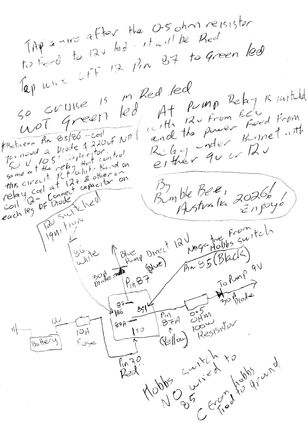 Tap a wire after the 0.5 ohm reisistor
to Feed to 12v led - it will be Red
Tap wire off 12 Pin 87 to Green led
So cruise is on Red led
WOT Green led
* Between Pin 85/86 - coil
50 V 105°
same at the relay that control
this circuit
relay coil at 12+ & other on
coil 12- Connect capacitor on
each leg of Diode
At Pump Relay is switched
with 12v from ECU
and the power Feed From
Relay under Bonnet with
either 9v or 12v
By
Bumble Bee,
Australia 2026!
Enjoy!
12V switched
Ignition
86
White
30A
Diode
Blue
Pump Direct 12V
(Blue)
Pin 87
Negative From
Hobbs switch
Pin 85 (Black)
87
86
85
87A
30
Pin
87A
(Yellow)
0.5
OHM
100W
Resistor
To Pump 9V
30A
Diode
Battery
Fuse
Pin 30
Red
Hobbs switch
NO wired to
85
C From Hobbs
Tied to Ground